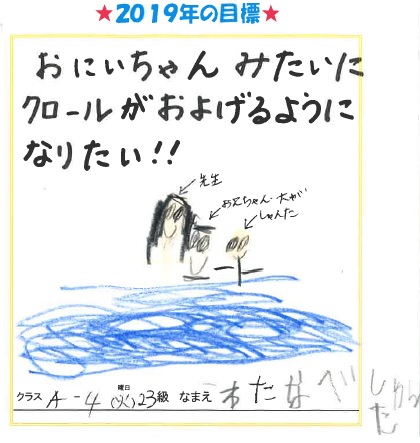 ★2019年の目標★
おにいちゃん みたいに
クロールがおよげるように
なりたい!!
先生
お兄ちゃん・大が
しゃんた
クラス A-4 曜日(火)23級 なまえ たなべ しゅんた